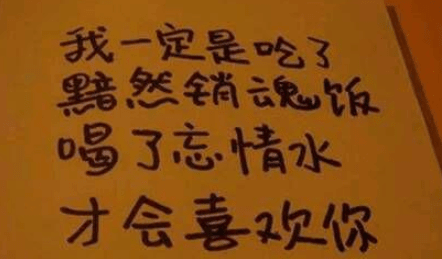 我一定是吃了
黯然销魂饭
喝了忘情水
才会喜欢你